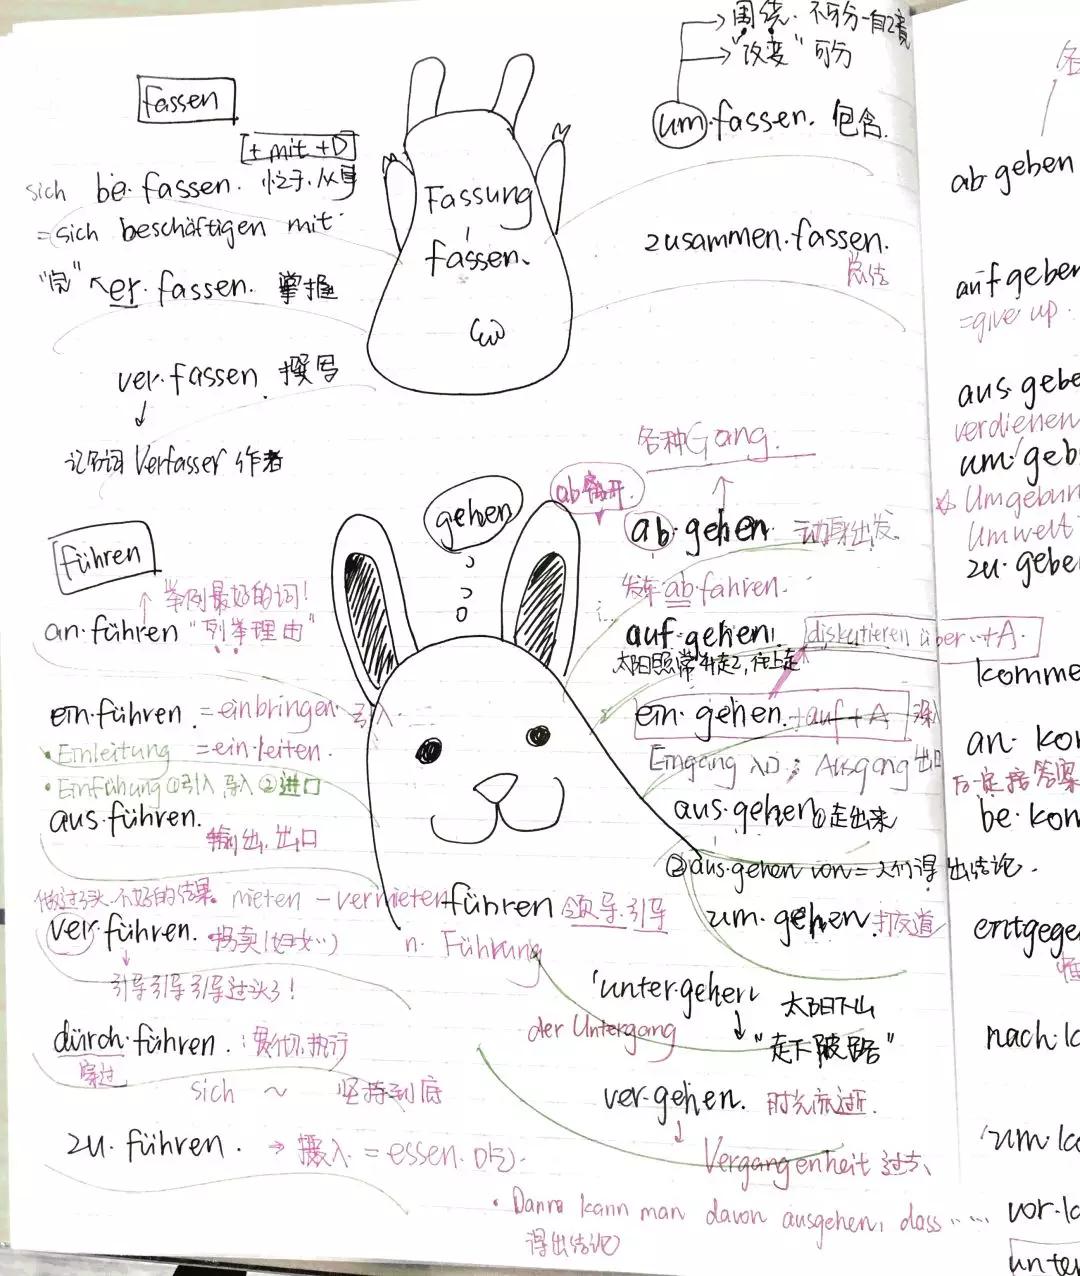 fassen
+ mit + D
sich be·fassen. 忙于,从事
= sich beschäftigen mit
er·fassen. 掌握
ver·fassen 撰写
记名词 Verfasser 作者
Fassung
fassen.
围绕. 不可分
"改变" 可分
um·fassen. 包含.
zusammen.fassen.
总结
各种Gang.
gehen
ab 离开.
ab·gehen. 动身出发.
发车 ab·fahren.
auf·gehen.
diskutieren über + A.
太阳照常升起,往上走
ein·gehen. + auf + A 深入
Eingang 入口; Ausgang 出口
aus·gehen ①走出来
② aus·gehen von = 人们得出结论.
um·gehen. 打交道
unter·gehen 太阳下山
der Untergang
"走下坡路"
ver·gehen. 时光流逝.
Vergangenheit 过去
· Dann kann man davon ausgehen, dass ......
得出结论
führen
举例最好的词!
an·führen "列举理由"
ein·führen. = einbringen. 引入.
· Einleitung = ein·leiten.
· Einfühung ①引入,导入 ②进口
aus·führen.
输出.出口
做过了头.不好的结果. mieten - vermieten
führen 领导.引导
n. Führung
ver·führen. 拐卖(妇女...)
引导引导引导过头了!
durch·führen. 贯彻,执行
穿过
sich ~ 坚持到底
zu·führen. → 摄入 = essen. 吃.
ab·geben
auf·geben
=give up.
aus·gebe
verdienen
um·geb
Umgebun
Umwelt
zu·gebe
komme
an·ko
be·kom
entgege
nach·k
um·k
vor·k
unter